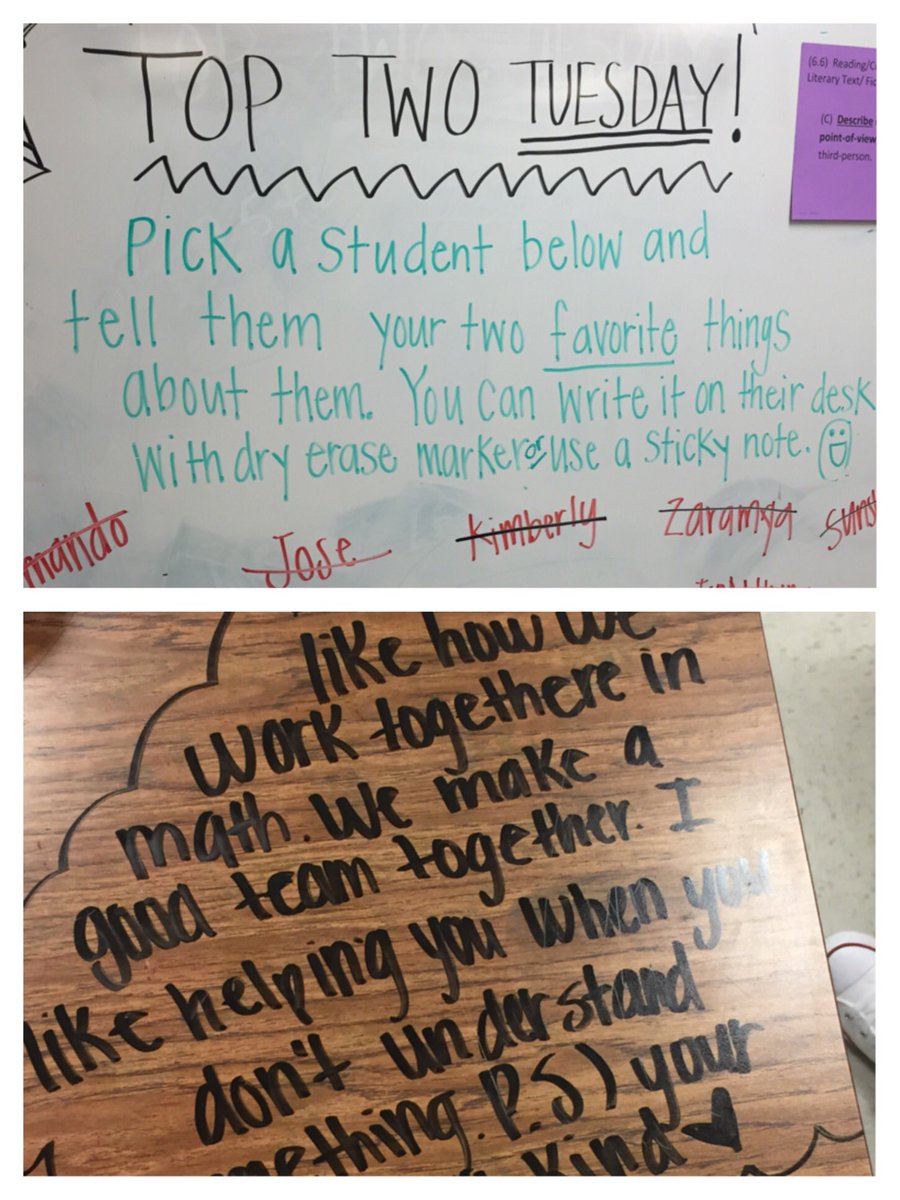 TOP TWO TUESDAY!
(6.6) Reading/C
Literary Text/ Fic
(C) Describe
point-of-view
third-person.
Pick a student below and
tell them your two favorite things
about them. You can write it on their desk
with dry erase marker or use a sticky note.
mando
Jose
Kimberly
Zaramya
suns
like how we
work togethere in
math. We make a
good team together. I
like helping you when you
don't understand
mething. P.S) your
kind